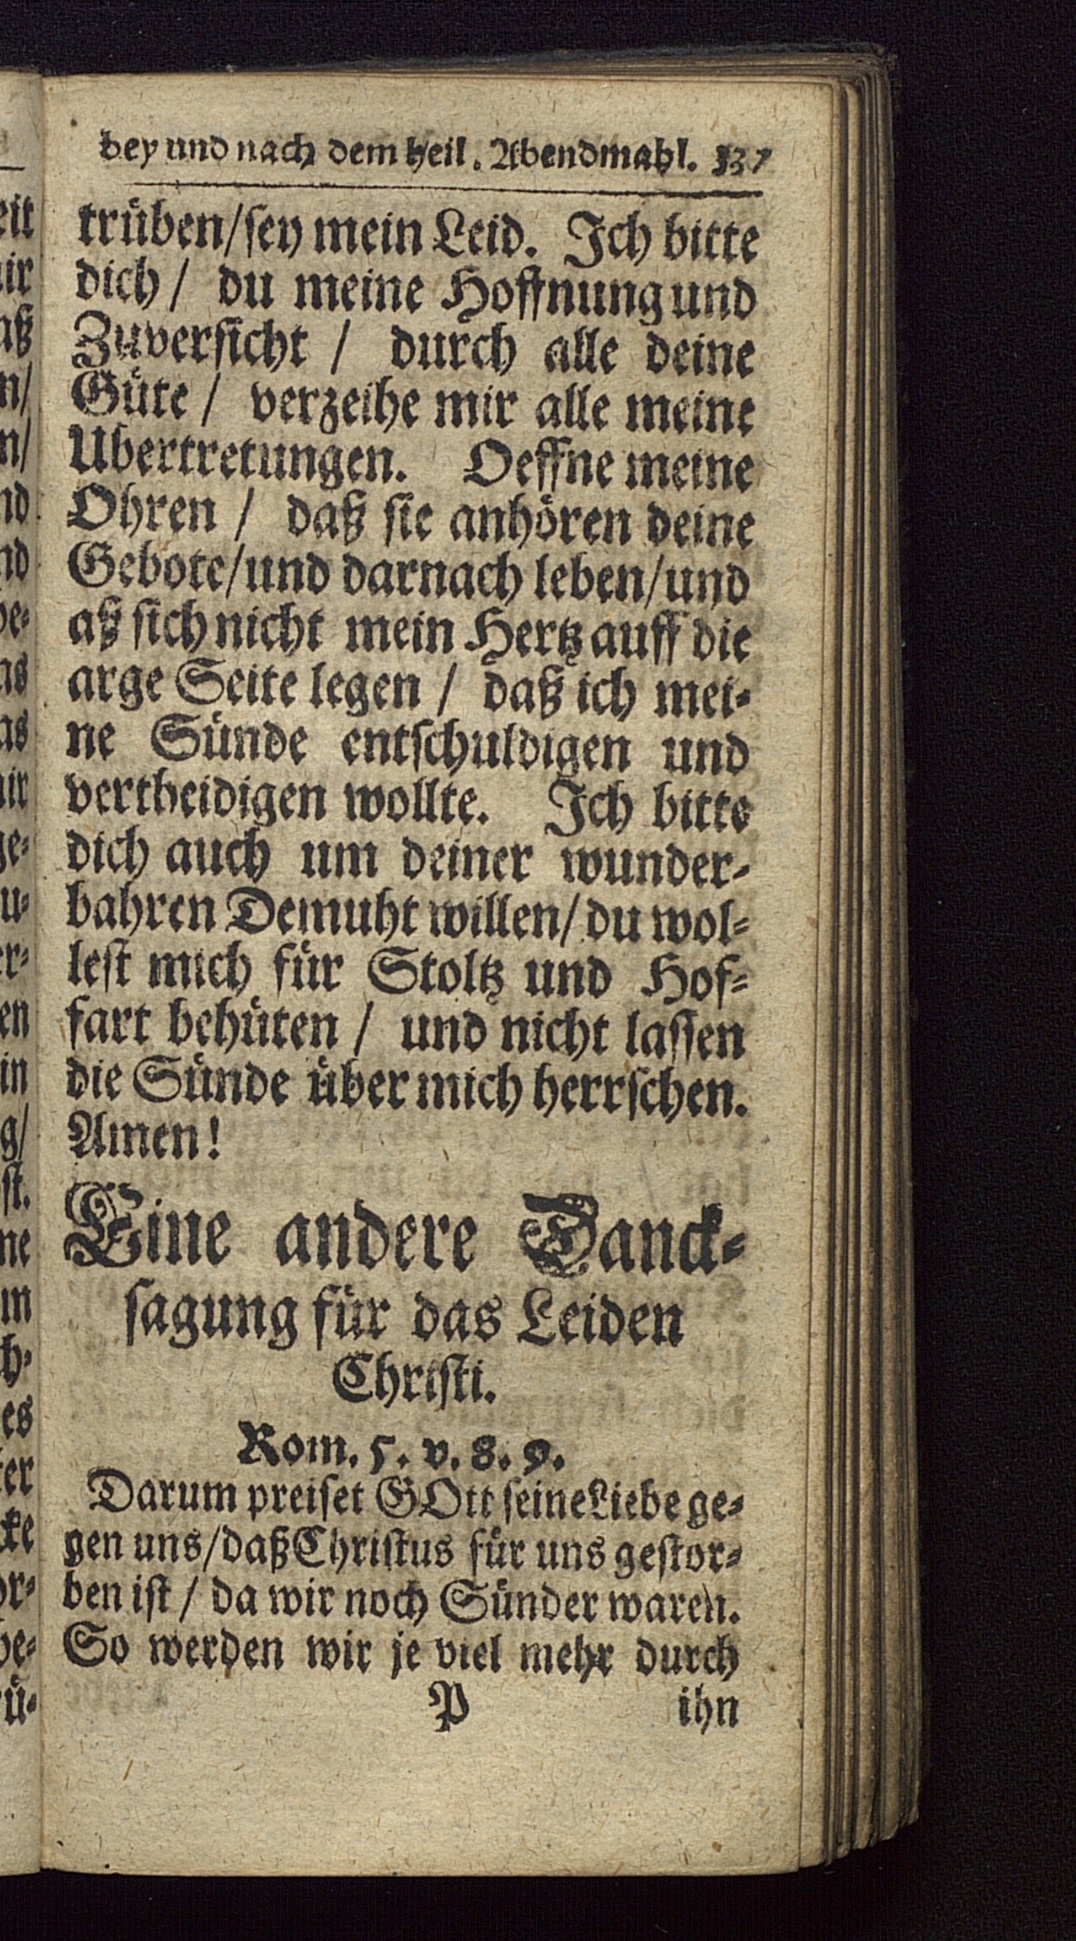 bey und nach dem heil. Abendmahl. 337
trüben/sey mein Leid. Ich bitte
dich / du meine Hoffnung und
Zuversicht / durch alle deine
Güte / verzeihe mir alle meine
Ubertretungen. Oeffne meine
Ohren / daß sie anhören deine
Gebote/und darnach leben/und
aß sich nicht mein Hertz auff die
arge Seite legen / daß ich mei-
ne Sünde entschuldigen und
vertheidigen wollte. Ich bitte
dich auch um deiner wunder-
bahren Demuht willen/du wol-
lest mich für Stoltz und Hof-
fart behüten / und nicht lassen
die Sünde über mich herrschen.
Amen!
Eine andere Danck-
sagung für das Leiden
Christi.
Rom. 5. v. 8. 9.
Darum preiset GOtt seine Liebe ge-
gen uns/daß Christus für uns gestor-
ben ist / da wir noch Sünder waren.
So werden wir je viel mehr durch
P ihn